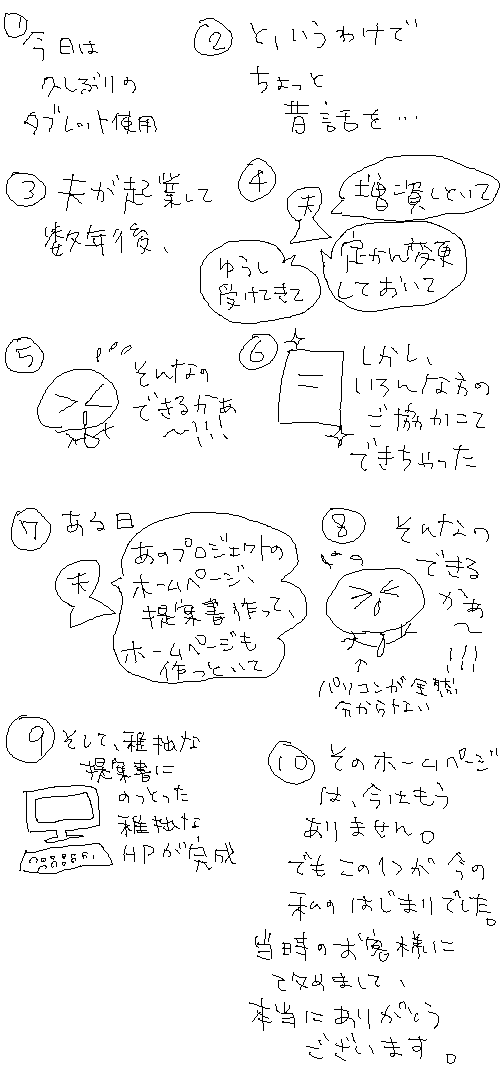 ① 今日は
久しぶりの
タブレット使用
② というわけで
ちょっと
昔話を…
③ 夫が起業して
数年後、
④
夫
増資しといて
定かん変更
しておいて
ゆうし
受けてきて
⑤
そんなの
できるかぁ
〜!!!
⑥
しかし、
いろんな方の
ご協力にて
できちゃった
⑦ ある日
夫
あのプロジェクトの
ホームページ、
提案書作って、
ホームページも
作っといて
⑧
そんなの
できる
かぁ
〜
!!!
↑
パソコンが全然
分からない
⑨ そして、稚拙な
提案書に
のっとった
稚拙な
HPが完成
⑩ そのホームページ
は、今はもう
ありません。
でもこの1つが今の
私のはじまりでした。
当時のお客様に
改めまして、
本当にありがとう
ございます。